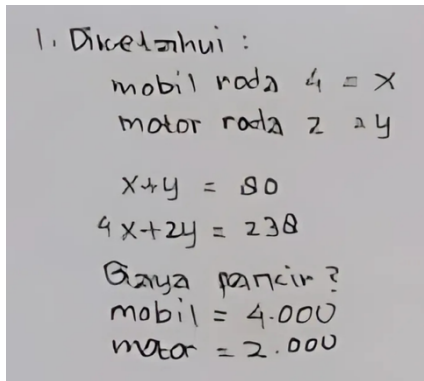 1. Diketahui :
mobil roda 4 = x
motor roda 2 = y
x+y = 90
4x+2y = 238
Biaya parkir ?
mobil = 4.000
motor = 2.000